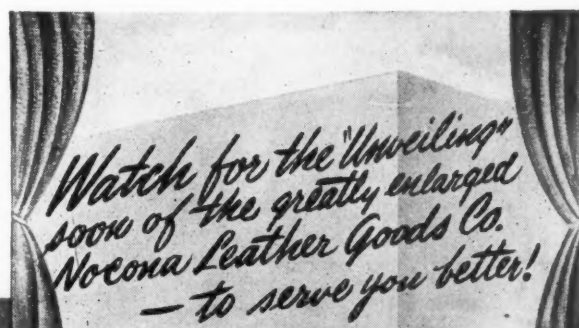 Watch for the "Unveiling"
soon of the greatly enlarged
Nocona Leather Goods Co.
— to serve you better!